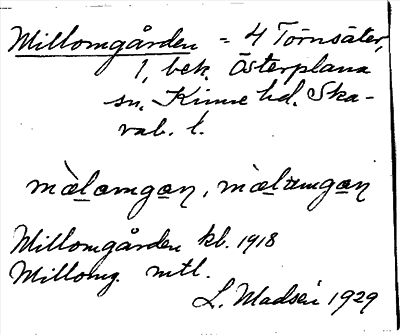 Millomgården = 4 Törnsäter,
1, bek. Österplana
sn. Kinne hd. Ska-
rab. l.
mæ̀lamgan, mæ̀lamgan
Millomgården kb. 1918
Millomg. mtl.
L. Madsén 1929